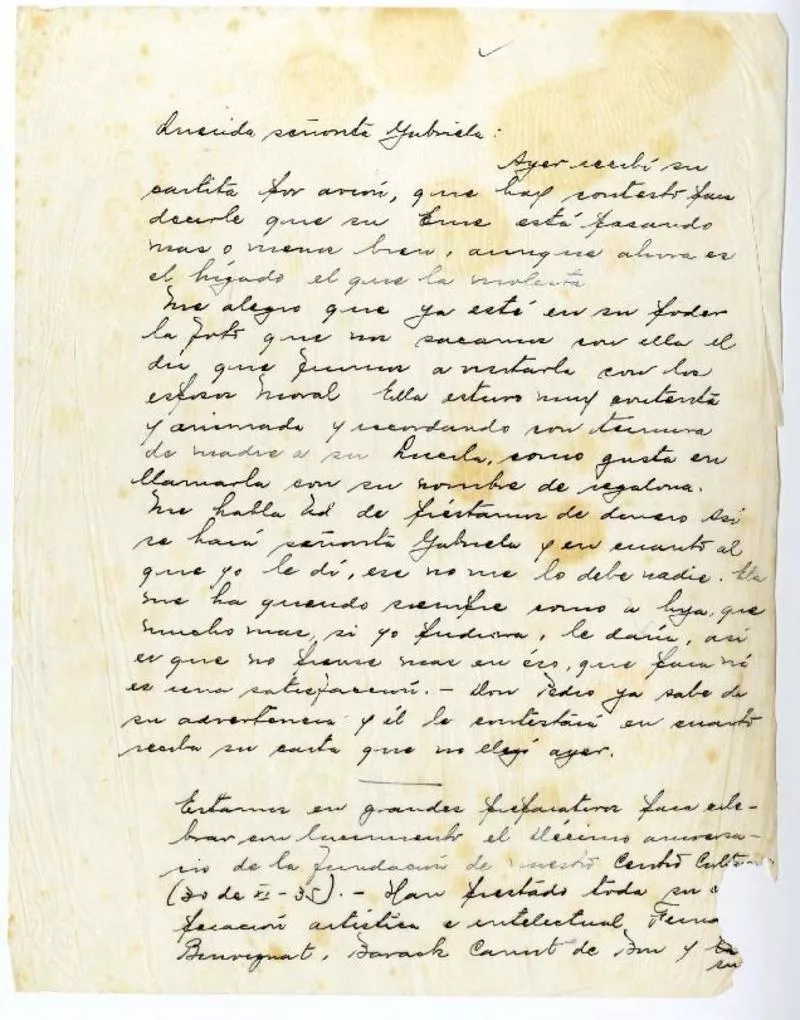 Querida señorita Gabriela:
Ayer recibí su
cartita por avión, que hoy contesto para
decirle que su Eme está pasando
mas o menos bien, aunque ahora es
el hígado el que la molesta
Me alegro que ya esté en su poder
la foto que nos sacamos con ella el
día que fuimos a visitarla con los
esposos Moral Ella estuvo muy contenta
y animada y recordando con ternura
de madre a su Lucila, como gusta en
llamarla con su nombre de regalona.
Me habla Ud de préstamos de dinero Así
se hará señorita Gabriela y en cuanto al
que yo le dí, ese no me lo debe nadie. Ella
me ha querido siempre como a hija, que
mucho mas, si yo pudiera, le daría, así
es que no piense mas en éso, que para mi
es una satisfacción. - Don Pedro ya sabe de
su advertencia y él le contestará en cuanto
reciba su carta que no llegó ayer.
Estamos en grandes preparativos para cele-
brar con lucimiento el décimo aniversa-
rio de la fundación de nuestro Centro
(30 de XI - 35). - Han prestado toda su
artística e intelectual,
Benvignat, Barack Canut de Bon y
su